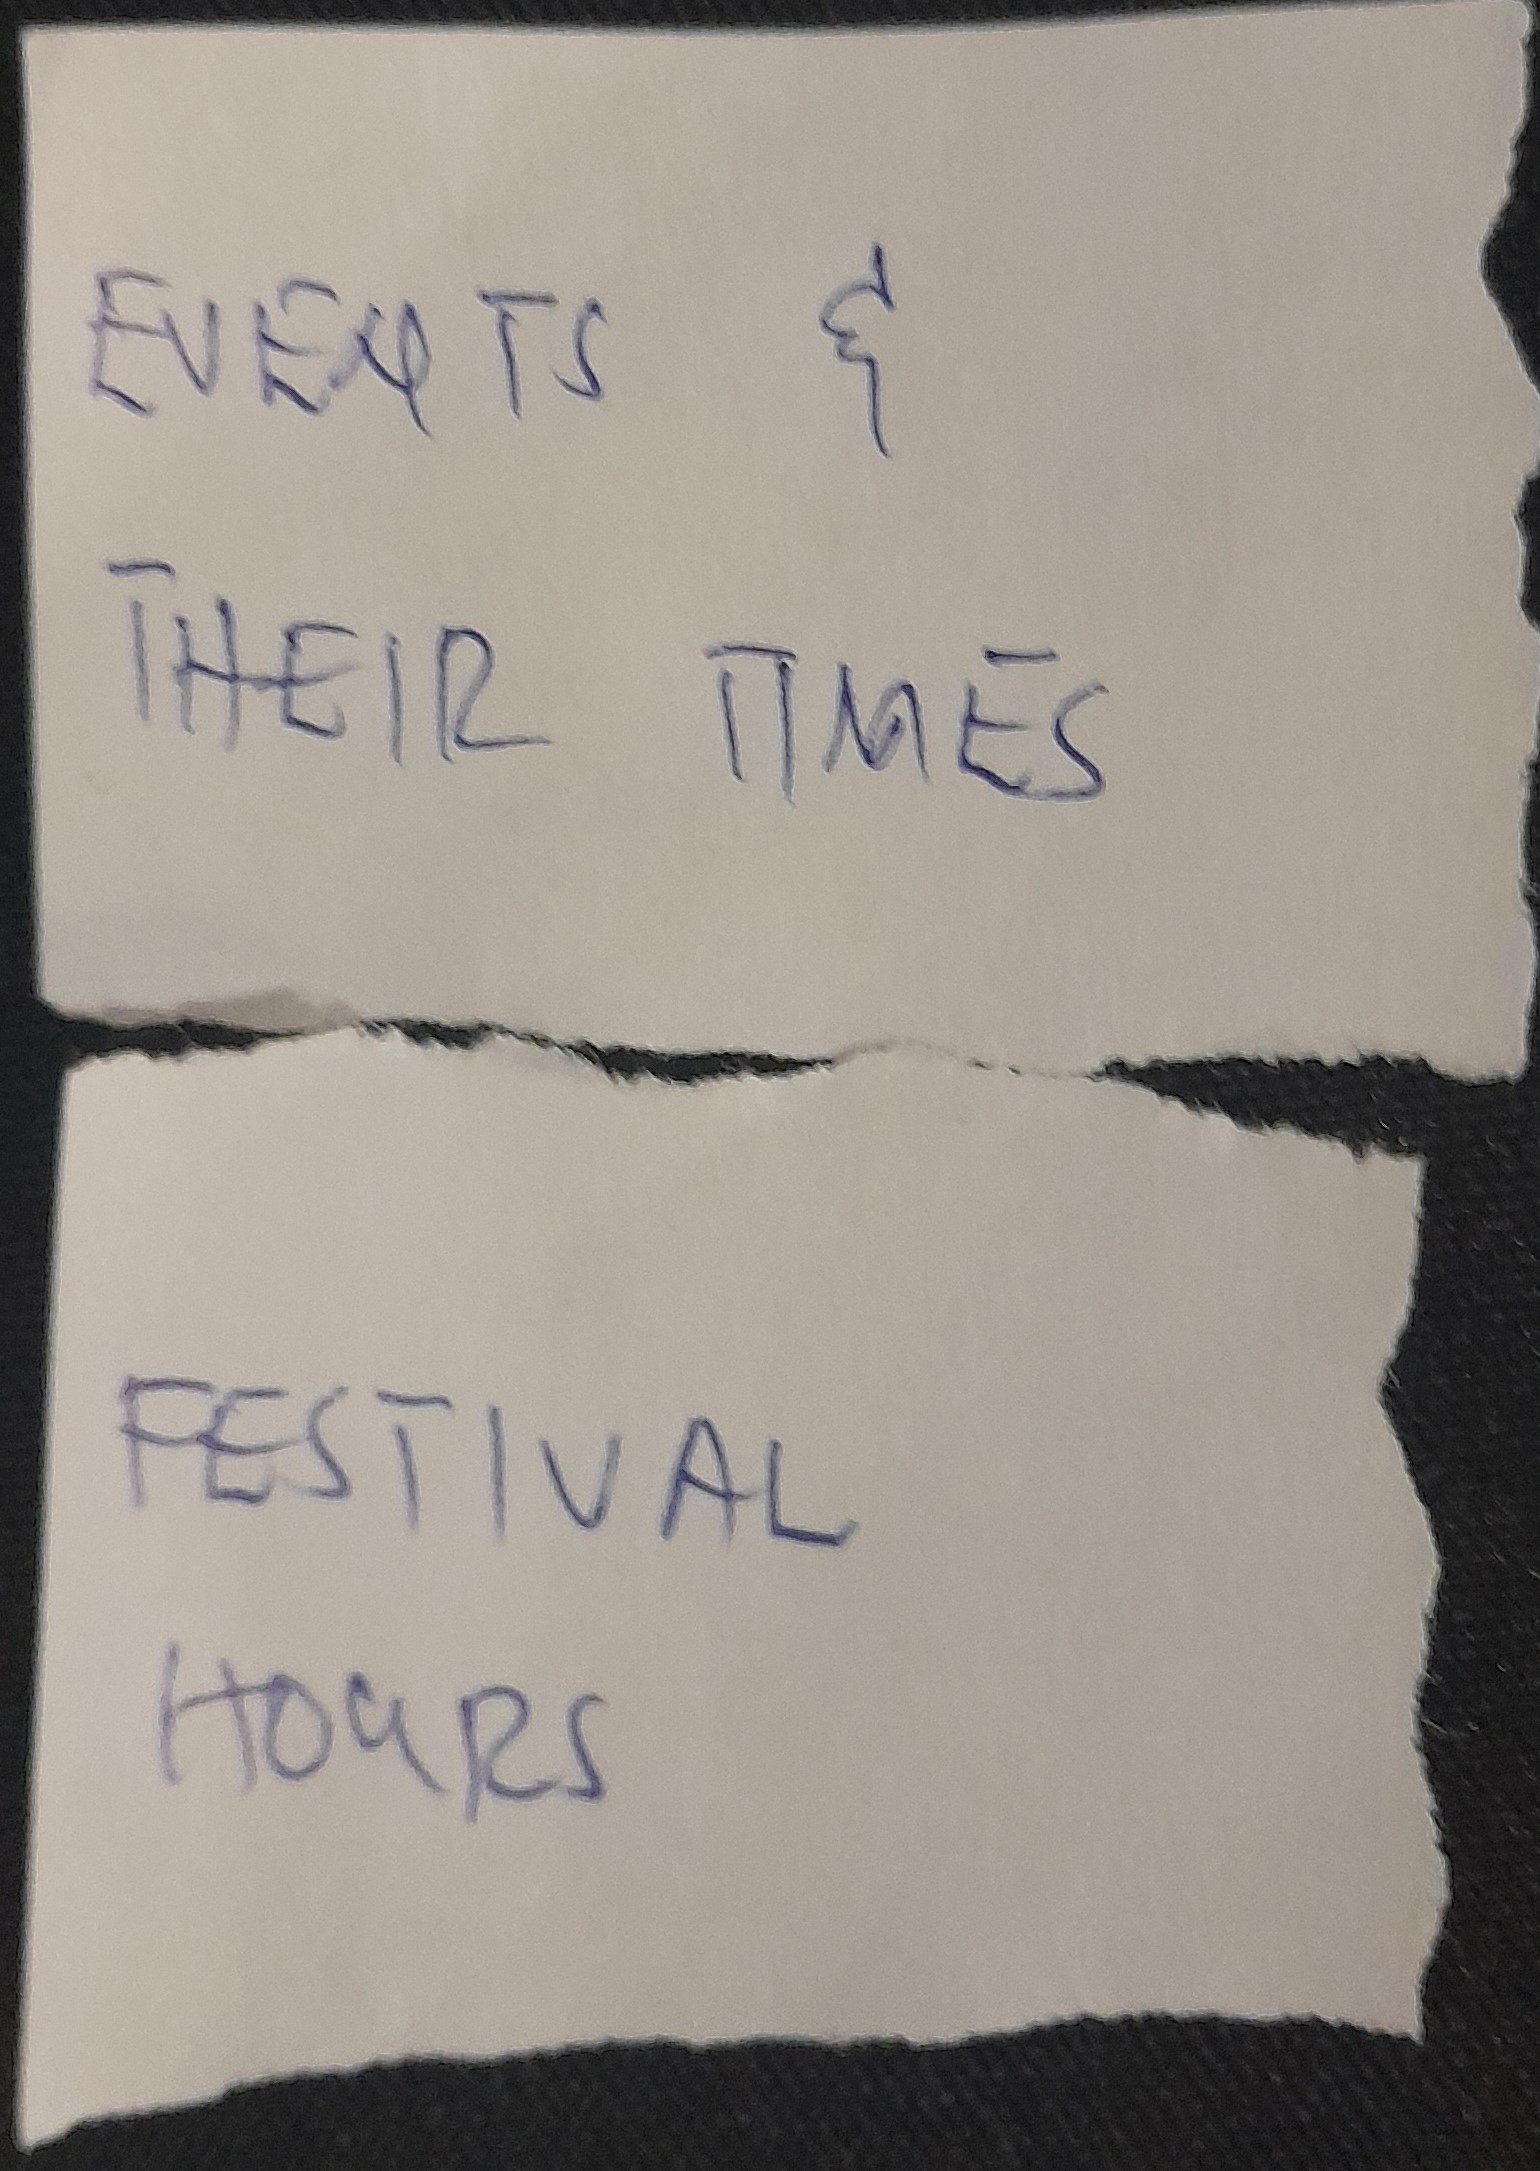 EVENTS &
THEIR TIMES
FESTIVAL
HOURS